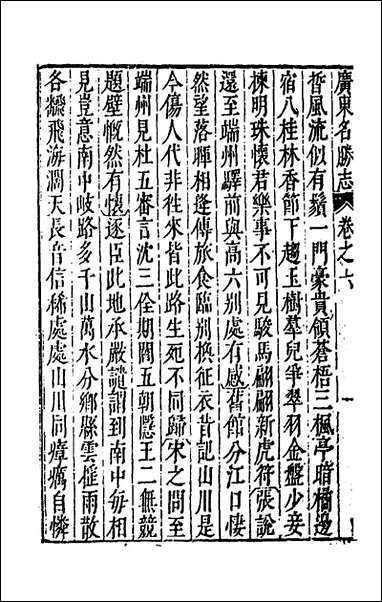 廣東名勝志 卷之六
晢風流似有鬚一門豪貴領蒼梧三楓亭暗橘邊
宿八桂林香節下趨玉樹羣兒爭翠羽金盤少妾
揀明珠懷君樂事不可見駿馬翩翩新虎符張說
還至端州驛前與高六別處有感舊館分江口悽
然望落暉相逢傳旅食臨別換征衣昔記山川是
今傷人代非徃來皆此路生死不同歸宋之問至
端州見杜五審言沈三佺期閻五朝隱王二無競
題壁慨然有懷逐臣北地承嚴譴謂到南中每相
見豈意南中岐路多千山萬水分鄉縣雲搖雨散
各飜飛海濶天長音信稀處處山川同瘴癘自憐